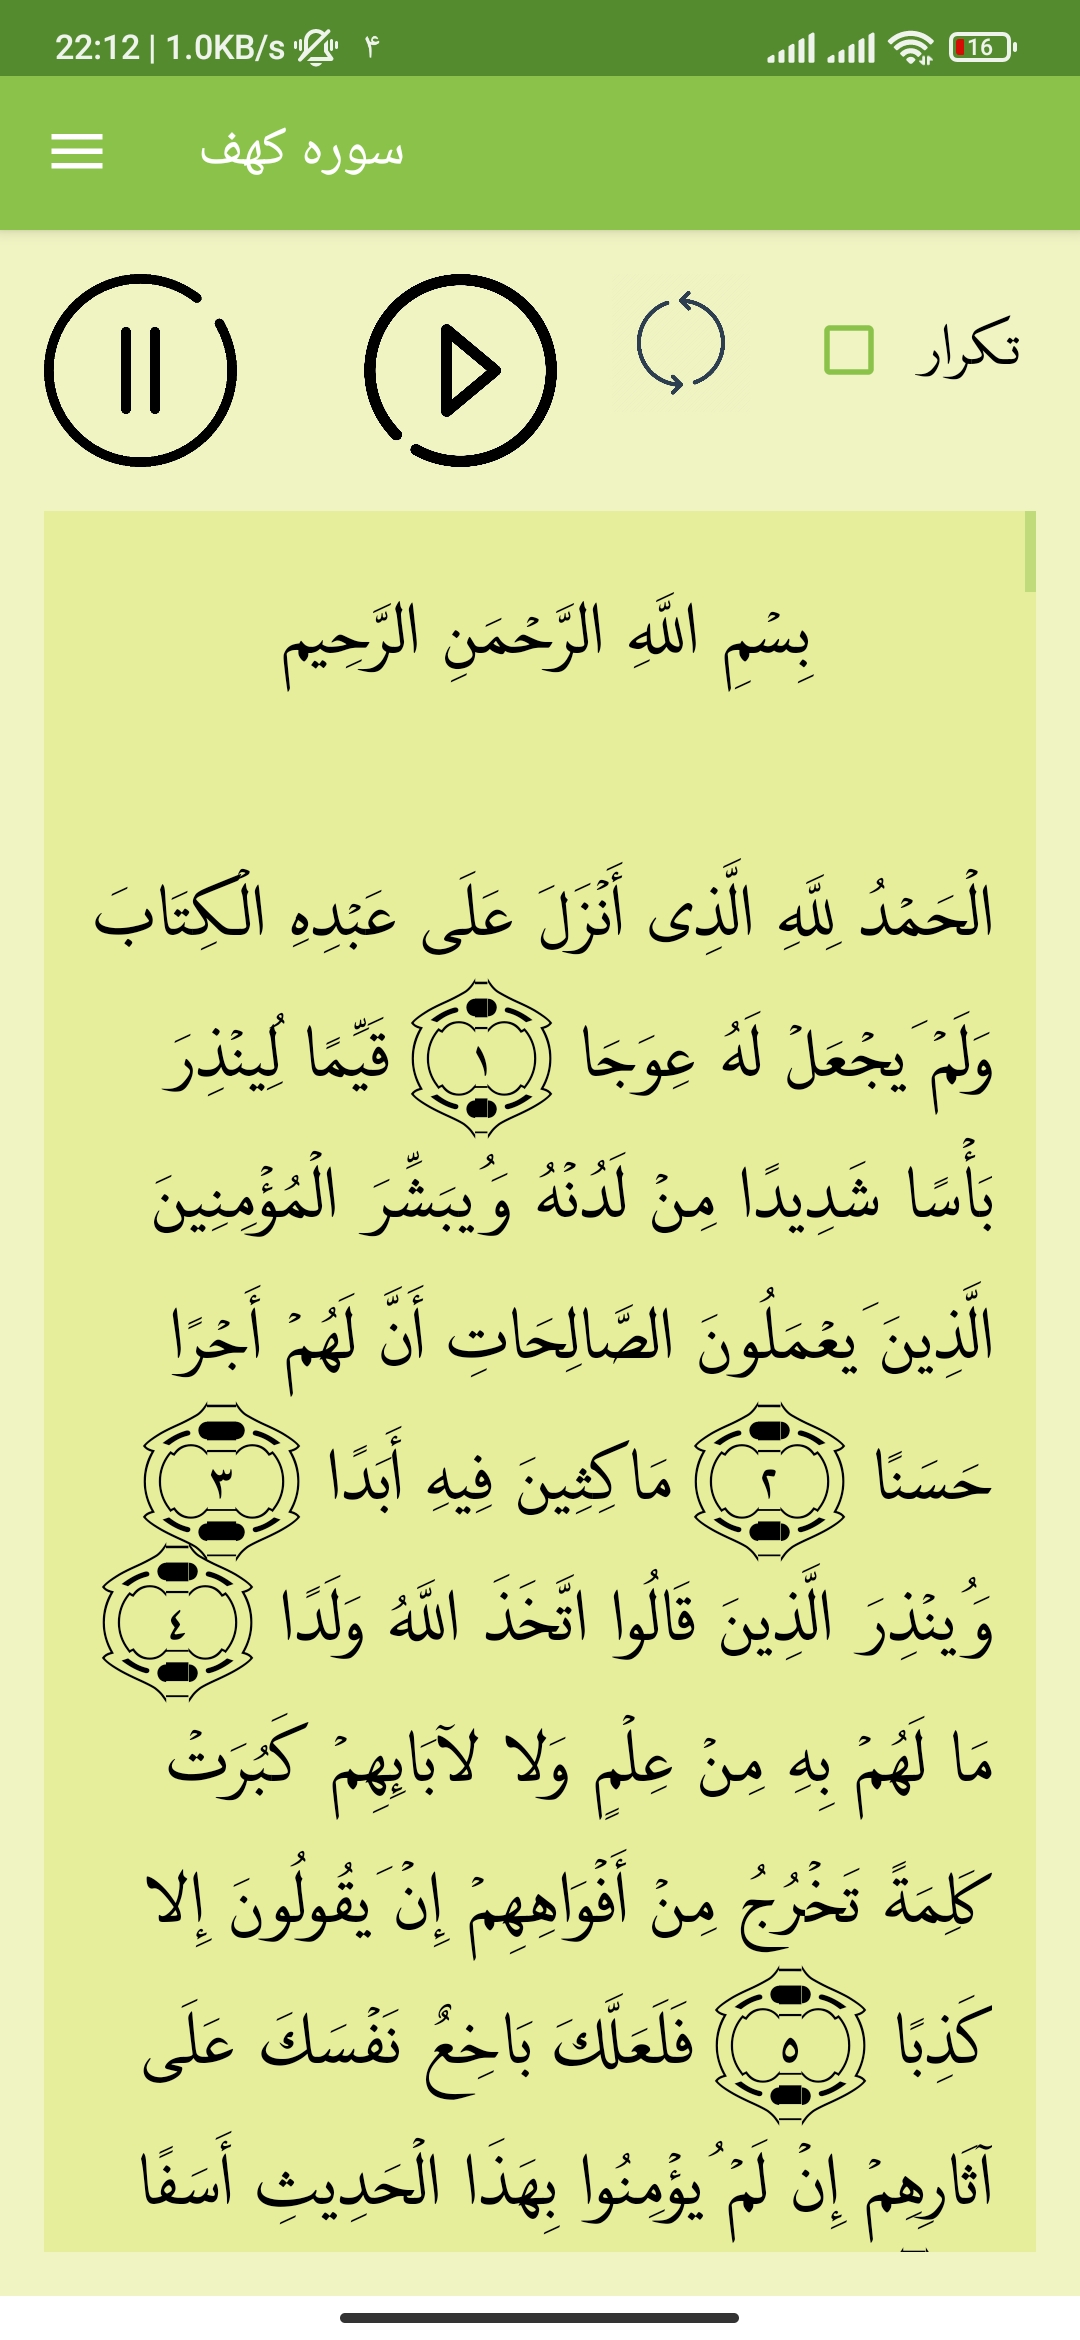 22:12 | 1.0KB/s ۴ 16
سوره کهف
تکرار
بِسْمِ اللَّهِ الرَّحْمَنِ الرَّحِيم
الْحَمْدُ لِلَّهِ الَّذِی أَنْزَلَ عَلَی عَبْدِهِ الْکِتَابَ
وَلَمْ يَجْعَلْ لَهُ عِوَجَا ١ قَيِّمًا لِيُنْذِرَ
بَأْسًا شَدِيدًا مِنْ لَدُنْهُ وَيُبَشِّرَ الْمُؤْمِنِينَ
الَّذِينَ يَعْمَلُونَ الصَّالِحَاتِ أَنَّ لَهُمْ أَجْرًا
حَسَنًا ٢ مَاكِثِينَ فِيهِ أَبَدًا ٣
وَيُنْذِرَ الَّذِينَ قَالُوا اتَّخَذَ اللَّهُ وَلَدًا ٤
مَا لَهُمْ بِهِ مِنْ عِلْمٍ وَلا لآبَائِهِمْ كَبُرَتْ
كَلِمَةً تَخْرُجُ مِنْ أَفْوَاهِهِمْ إِنْ يَقُولُونَ إِلا
كَذِبًا ٥ فَلَعَلَّكَ بَاخِعٌ نَفْسَكَ عَلَى
آثَارِهِمْ إِنْ لَمْ يُؤْمِنُوا بِهَذَا الْحَدِيثِ أَسَفًا